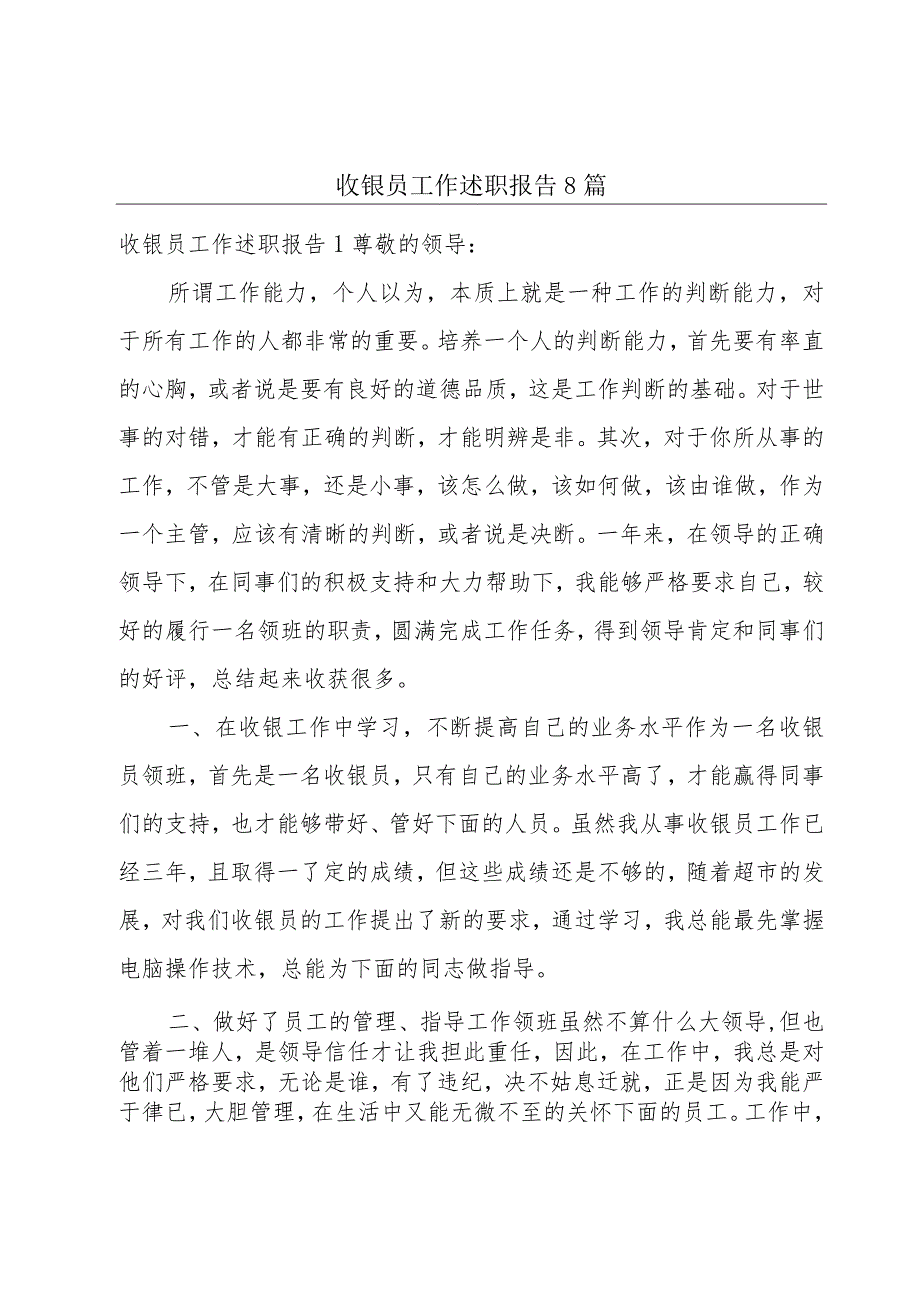 收银员工作述职报告 8 篇
收银员工作述职报告 1 尊敬的领导：
所谓工作能力，个人以为，本质上就是一种工作的判断能力，对
于所有工作的人都非常的重要。培养一个人的判断能力，首先要有率直
的心胸，或者说是要有良好的道德品质，这是工作判断的基础。对于世
事的对错，才能有正确的判断，才能明辨是非。其次，对于你所从事的
工作，不管是大事，还是小事，该怎么做，该如何做，该由谁做，作为
一个主管，应该有清晰的判断，或者说是决断。一年来，在领导的正确
领导下，在同事们的积极支持和大力帮助下，我能够严格要求自己，较
好的履行一名领班的职责，圆满完成工作任务，得到领导肯定和同事们
的好评，总结起来收获很多。
一、在收银工作中学习，不断提高自己的业务水平作为一名收银
员领班，首先是一名收银员，只有自己的业务水平高了，才能赢得同事
们的支持，也才能够带好、管好下面的人员。虽然我从事收银员工作已
经三年，且取得一了定的成绩，但这些成绩还是不够的，随着超市的发
展，对我们收银员的工作提出了新的要求，通过学习，我总能最先掌握
电脑操作技术，总能为下面的同志做指导。
二、做好了员工的管理、指导工作领班虽然不算什么大领导,但也
管着一堆人，是领导信任才让我担此重任，因此，在工作中，我总是对
他们严格要求，无论是谁，有了违纪，决不姑息迁就，正是因为我能严
于律已，大胆管理，在生活中又能无微不至的关怀下面的员工。工作中，